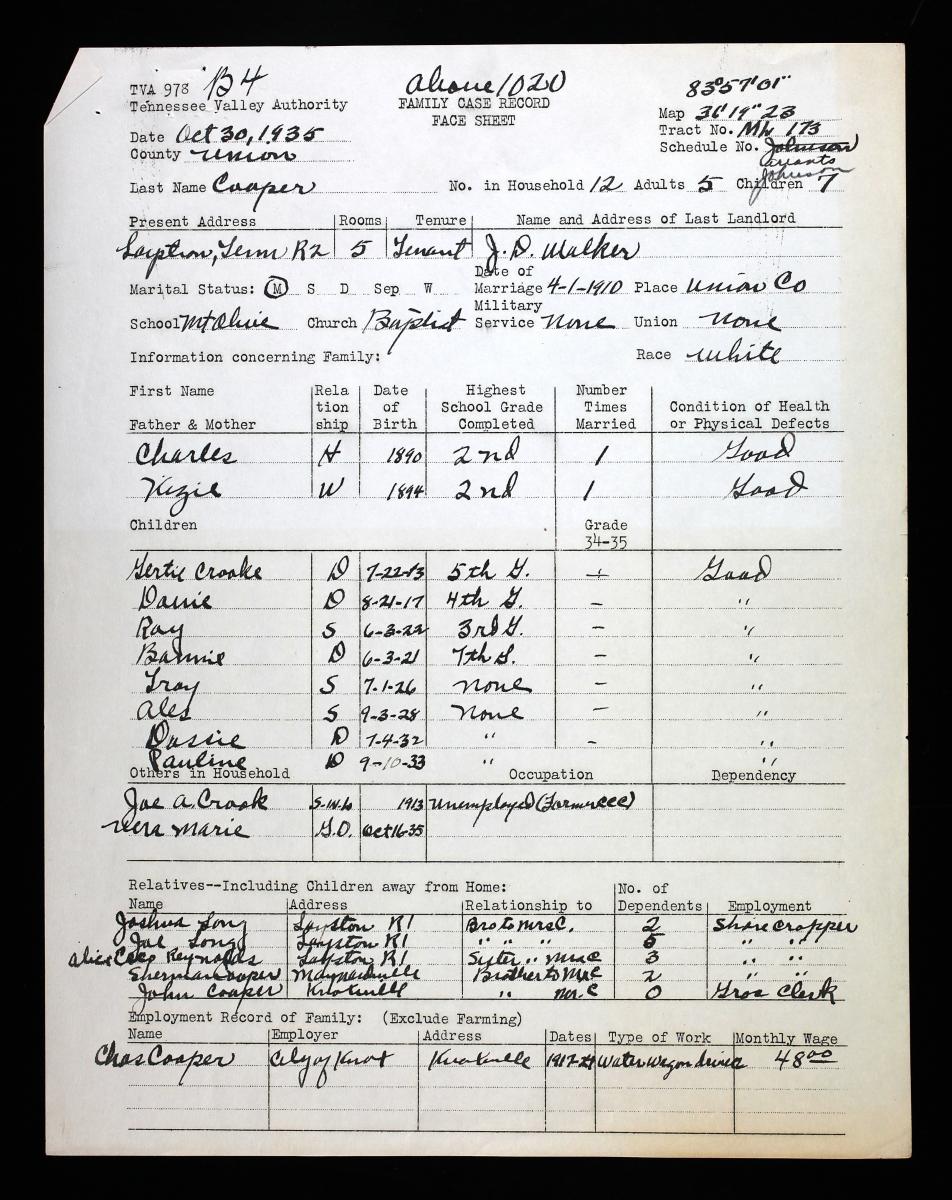 TVA 978 B4 above 1020 83°57'01"
Tennessee Valley Authority FAMILY CASE RECORD Map 36°19" 23
FACE SHEET Tract No. 173
Date Oct 30, 1935 Schedule No. Johnson
County Union Johnson
Last Name Cooper No. in Household 12 Adults 5 Children 7
Present Address Rooms Tenure Name and Address of Last Landlord
Tenn R2 5 Tenant J. D. Walker
Marital Status: M S D Sep W Date of Marriage 4-1-1910 Place Union Co
School Mt Olive Church Baptist Military Service None Union None
Information concerning Family: Race White
First Name Rela tion ship Date of Birth Highest School Grade Completed Number Times Married Condition of Health or Physical Defects
Father & Mother
Charles H 1890 2nd 1 Good
Kizie W 1894 2nd 1 Good
Children Grade 34-35
Gertie Crooke D 7-22-13 5th G. - Good
D 8-21-17 4th G. - "
Ray S 6-3-22 3rd G. - "
D 6-3-21 7th G. - "
Troy S 7-1-26 None - "
Ales S 9-3-28 None - "
Dossie D 7-4-32 " - "
Pauline D 9-10-33 " "
Others in Household Occupation Dependency
Joe A. Crook S-in-L 1913 Unemployed (Former CCC)
Vera Marie G.D. Oct 16-35
Relatives--Including Children away from Home:
Name Address Relationship to No. of Dependents Employment
Joshua Long Layston R1 Bro to Mrs C. 2 Share Cropper
Joe Long Layston R1 " " " 5 " "
Alice Reynolds Layston R1 Sister " Mrs C 3 " "
Sherman Cooper Maynardville Brother to Mr C 2 " "
John Cooper Knoxville " Mr. C 0 Gros Clerk
Employment Record of Family: (Exclude Farming)
Name Employer Address Dates Type of Work Monthly Wage
Chas Cooper City of Knox Knoxville Water Wagon driver 48.00